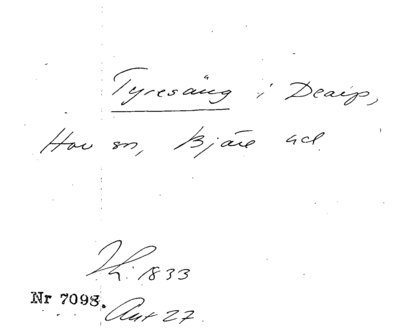 Tyresäng i Dearp,
Hov sn, Bjäre hd.
Th. 1833
Nr 7098.
Ant 27.